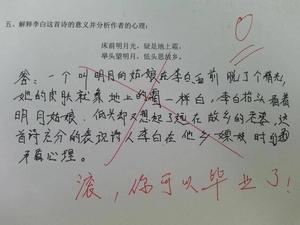 五、解释李白这首诗的意义并分析作者的心理：
床前明月光，疑是地上霜，
举头望明月，低头思故乡。
答：一个叫明月的姑娘在李白面前脱了个精光，
她的皮肤就象地上的霜一样白，李白抬头看看
明月姑娘，低头却又想起了远在故乡的老婆，这
首诗充分的表现诗人李白在他乡嫖妓时的矛
盾心理。
0
滚，你可以毕业了！